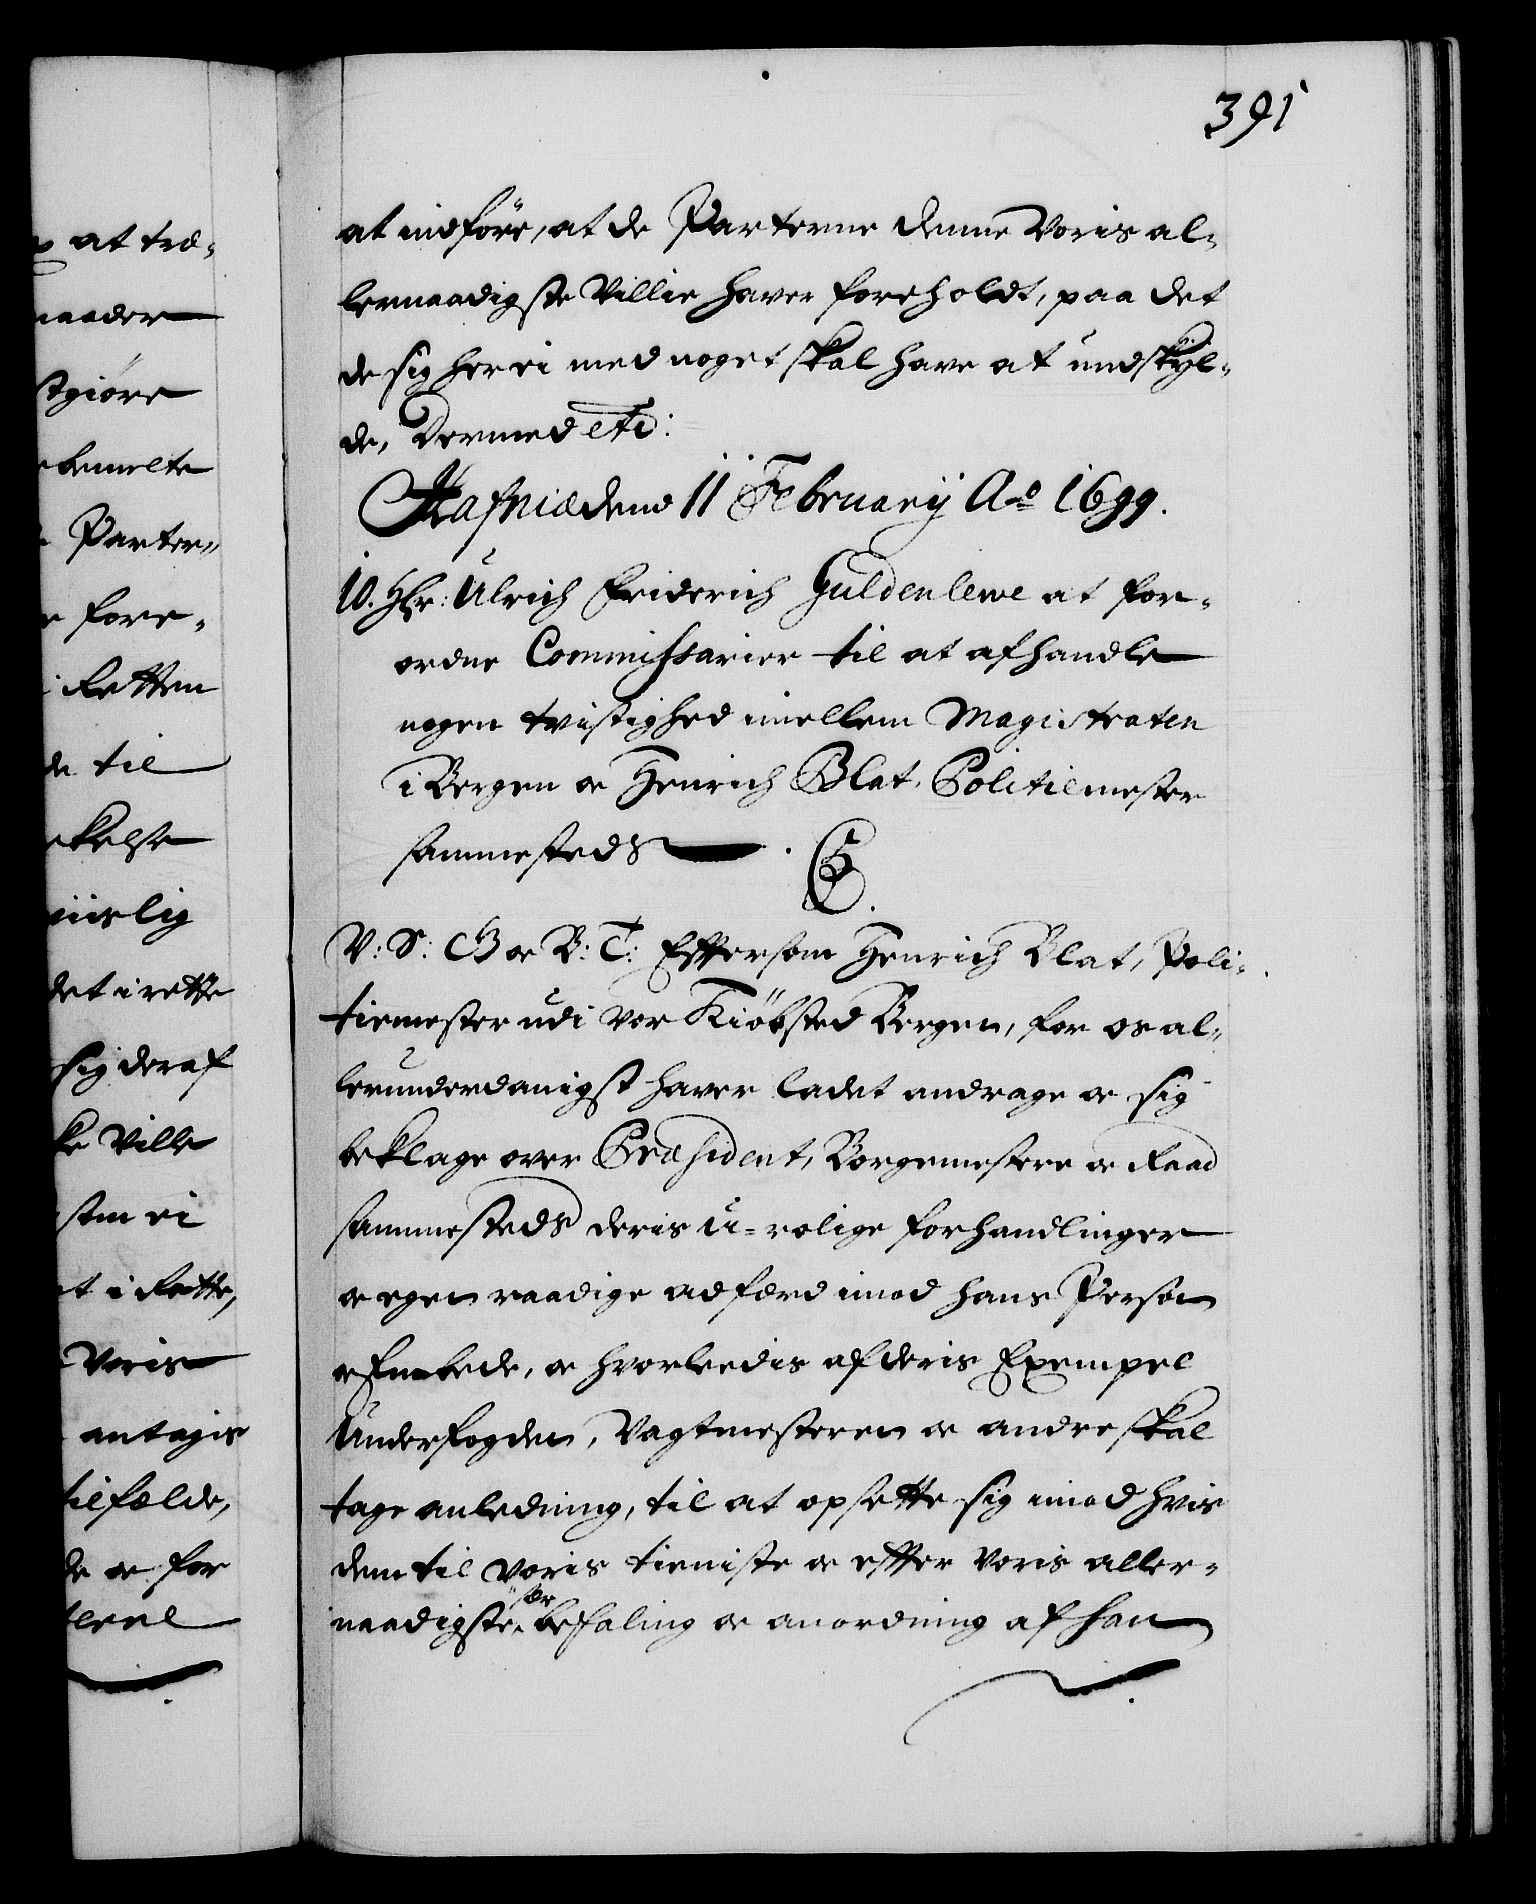 391
at indføre, at de Parterne denne Voris al-
lernaadigste Villie haver foreholdt, paa det
de sig herri med noget skal have at undskÿl-
de, Dermed etc:
Hafniæ dend 11 Februarij Ao 1699.
10. Hr: Ulrich Friderich Guldenlewe at for-
ordne Commissarier til at afhandle
nogen tvistighed imellem Magistraten
i Bergen oc Henrich Blat, Politiemester
sammesteds.
V: S: G oc B: T: Effersom Henrich Blat, Poli-
tiemester udi Vor Kiöbsted Bergen, for os al-
lerunderdanigst haver ladet andrage oc sig
beklage over Præsident, Borgemestere oc Raad
sammesteds deris u-rolige forhandlinger
oc egen raadige adfærd imod hans Person
oc Embede, oc hvorledis af deris Exempel
Underfogden, Vagtmesteren oc andre skal
tage anledning, til at opsette sig imod hvis
dem til Voris tieniste oc effter Voris aller-
naadigste befaling oc anordning af han
at træ-
naader
stgiøre
bemelte
Parter-
fore-
Retten
de til
det i rette
sig deraf
Ville
ei
i Rette,
Voris
antagis
tilfælde,
oc for